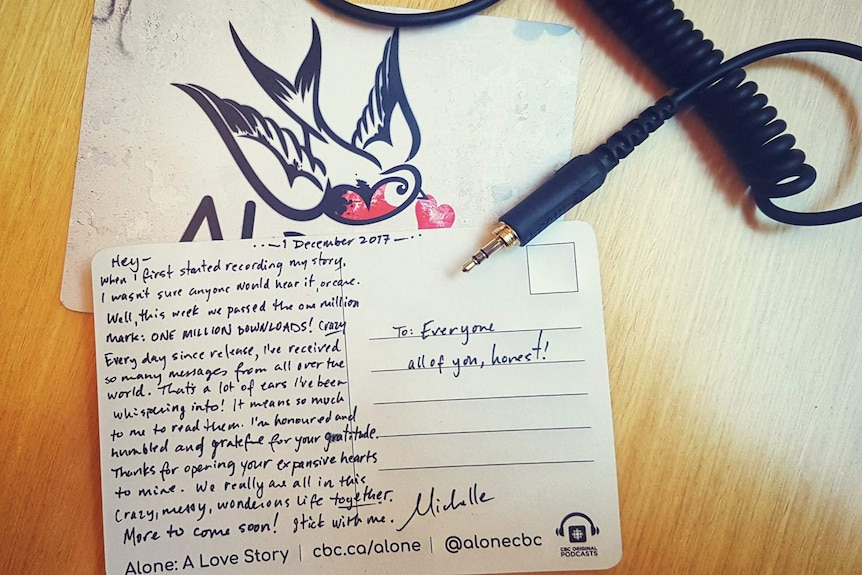 ALO
· · — 1 December 2017 — · ·
Hey —
When I first started recording my story,
I wasn't sure anyone would hear it, or care.
Well, this week we passed the one million
mark: ONE MILLION DOWNLOADS! Crazy
Every day since release, I've received
so many messages from all over the
world. That's a lot of ears I've been
whispering into! It means so much
to me to read them. I'm honoured and
humbled and grateful for your gratitude.
Thanks for opening your expansive hearts
to mine. We really are all in this
crazy, messy, wonderous life together.
More to come soon! Stick with me. Michelle
To: Everyone
all of you, honest!
Alone: A Love Story | cbc.ca/alone | @alonecbc
CBC ORIGINAL
PODCASTS